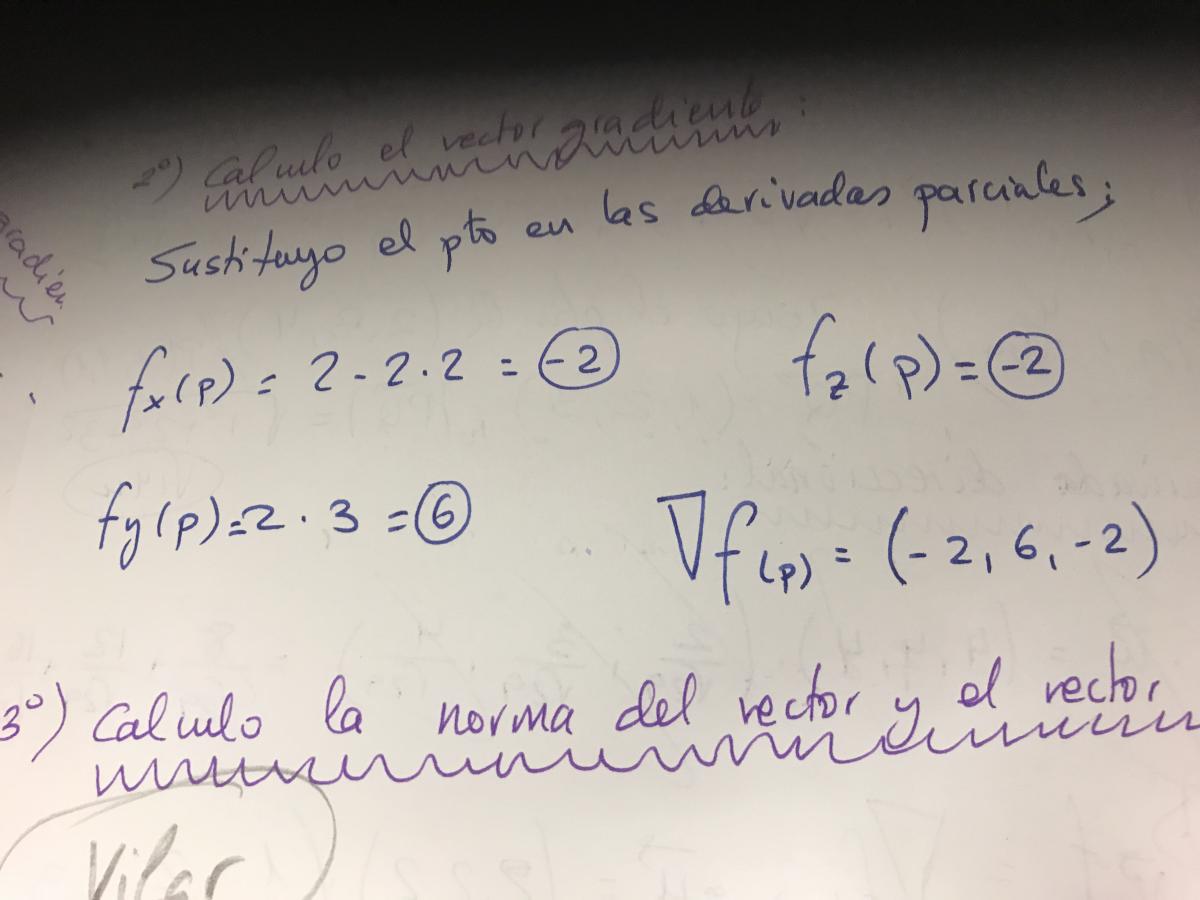 2º) Calculo el vector gradiente:
Sustituyo el pto en las derivadas parciales;
gradien
fx(p) = 2 - 2 · 2 = -2
fz(p) = -2
fy(p) = 2 · 3 = 6
∇f(p) = (-2, 6, -2)
3º) Calculo la norma del vector y el vector
Vilar